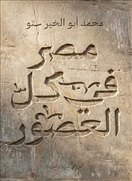 محمد أبو الخير ستو
مصر
في كل
العصور